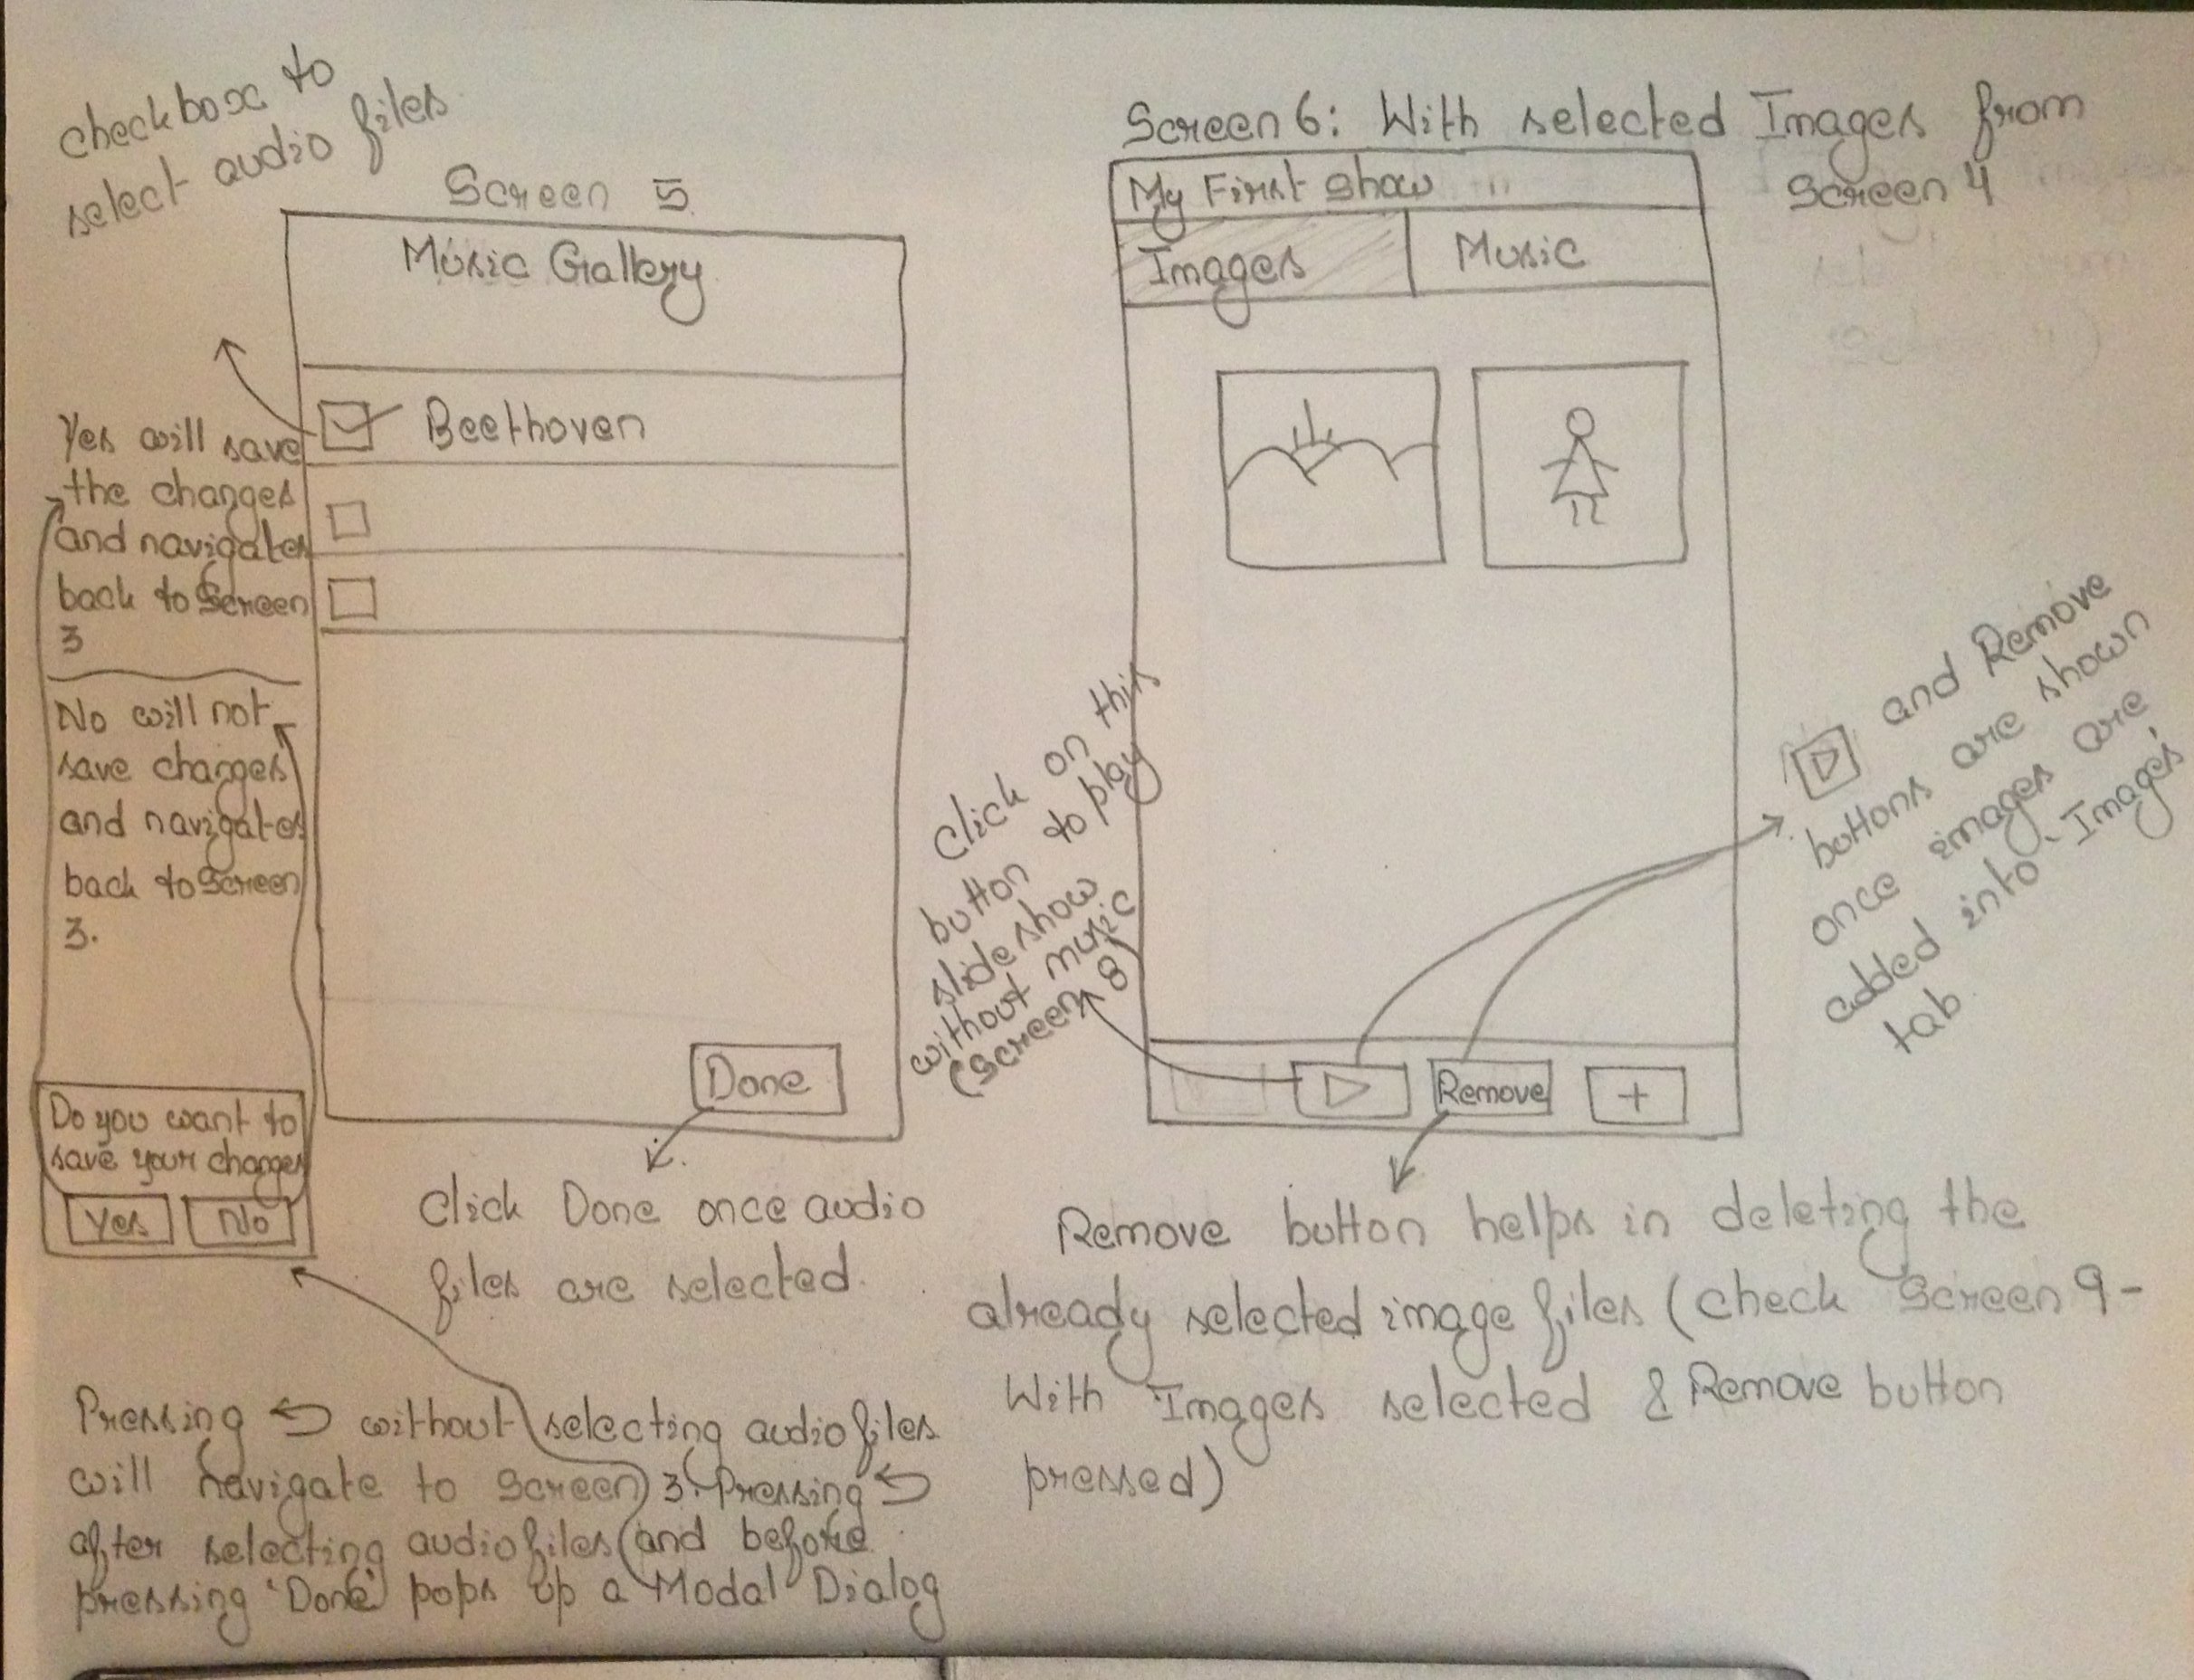 checkbox to
select audio files
Screen 5
Music Gallery
Beethoven
Done
Yes will save
the changes
and navigates
back to Screen
3
No will not
save changes
and navigates
back to Screen
3.
Do you want to
save your changes
Yes No
Click Done once audio
files are selected.
Pressing ↩ without selecting audio files
will navigate to Screen 3. Pressing ↩
after selecting audio files (and before
pressing 'Done' pops up a Modal Dialog
Screen 6: With selected Images from
Screen 4
My First Show
Images Music
Click on this
button to play
slide show
without music
(Screen 8)
Remove +
and Remove
buttons are shown
once images are
added into 'Images'
tab
Remove button helps in deleting the
already selected image files (check Screen 9-
With Images selected & Remove button
pressed)